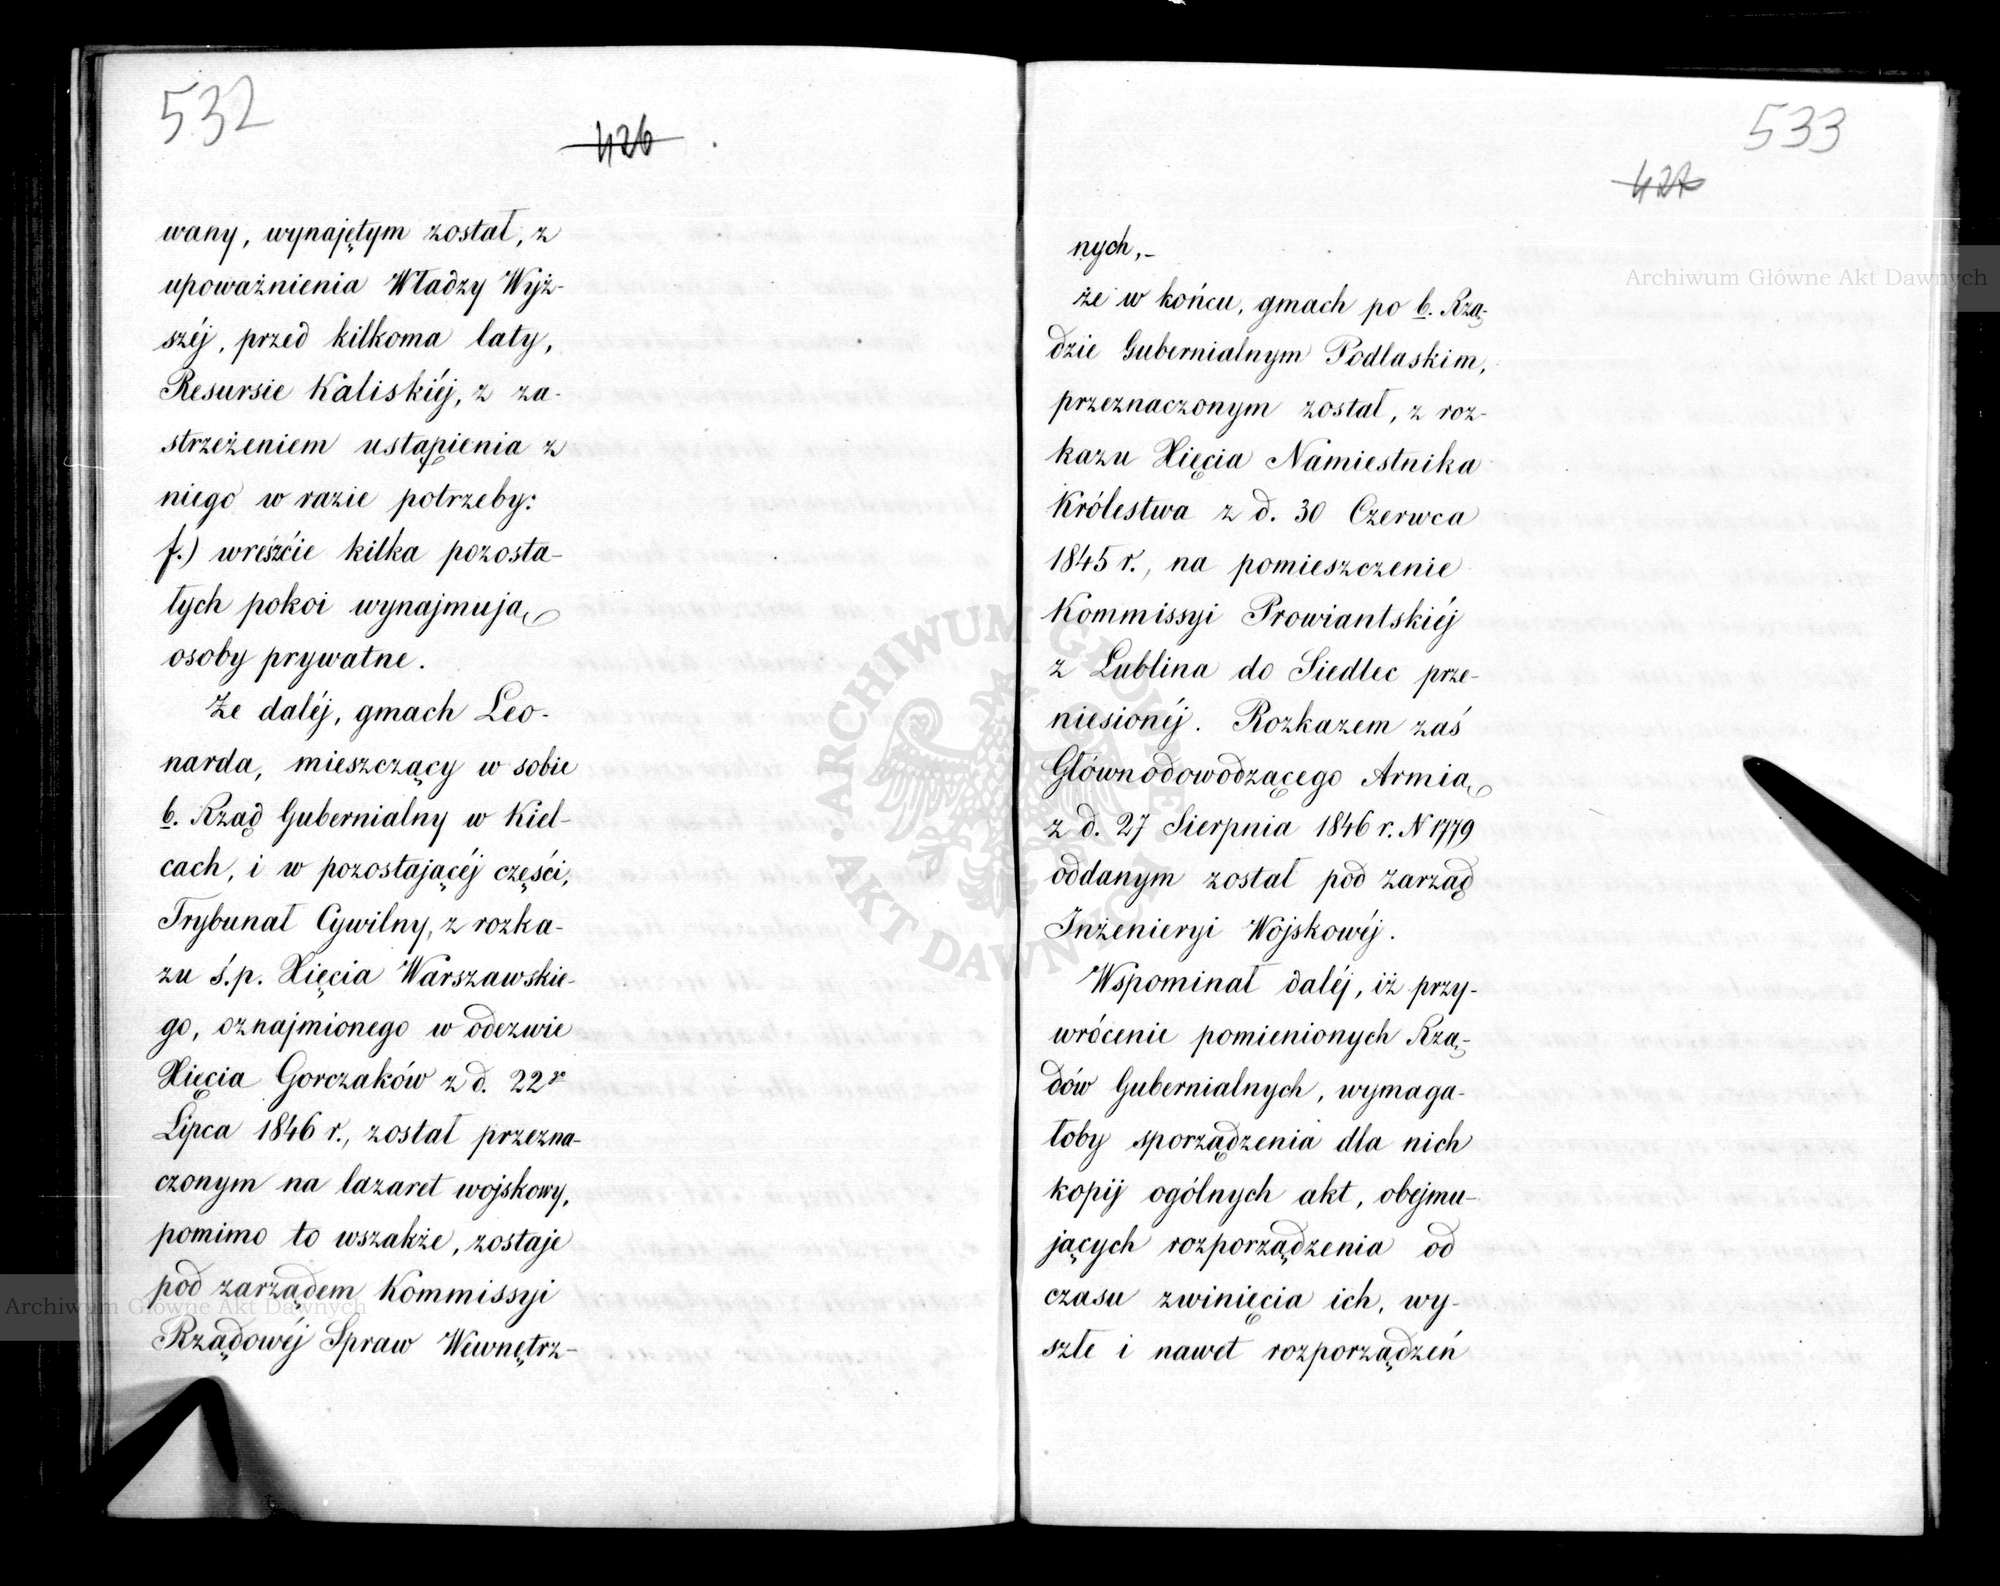 532
426
wany, wynajętym został, z
upoważnienia Władzy Wyż-
széj, przed kilkoma laty,
Resursie Kaliskiéj, z za-
strzeżeniem ustąpienia z
niego w razie potrzeby:
f.) wreszcie kilka pozosta-
łych pokoi wynajmują
osoby prywatne.
Że daléj, gmach Leo-
narda, mieszczący w sobie
b. Rząd Gubernialny w Kiel-
cach, i w pozostającéj części,
Trybunał Cywilny, z rozka-
zu ś.p. Xięcia Warszawskie-
go, oznajmionego w odezwie
Xięcia Gorczaków z d. 22
Lipca 1846 r., został przezna-
czonym na lazaret wojskowy,
pomimo to wszakże, zostaje
pod zarządem Kommissyi
Rządowéj Spraw Wewnętrz-
533
427
nych,-
że w końcu, gmach po b. Rzą-
dzie Gubernialnym Podlaskim,
przeznaczonym został, z roz-
kazu Xięcia Namiestnika
Królestwa z d. 30 Czerwca
1845 r., na pomieszczenie
Kommissyi Prowiantskiéj
z Lublina do Siedlec prze-
niesionéj. Rozkazem zaś
Głównodowodzącego Armią
z d. 27 Sierpnia 1846 r. N 1779
oddanym został pod zarząd
Inżenieryi Wojskowéj.
Wspominał daléj, iż przy-
wrócenie pomienionych Rzą-
dów Gubernialnych, wymaga-
łoby sporządzenia dla nich
kopij ogólnych akt, obejmu-
jących rozporządzenia od
czasu zwinięcia ich, wy-
szłe i nawet rozporządzeń
Archiwum Główne Akt Dawnych
Archiwum Główne Akt Dawnych
ARCHIWUM GŁÓWNE AKT DAWNYCH